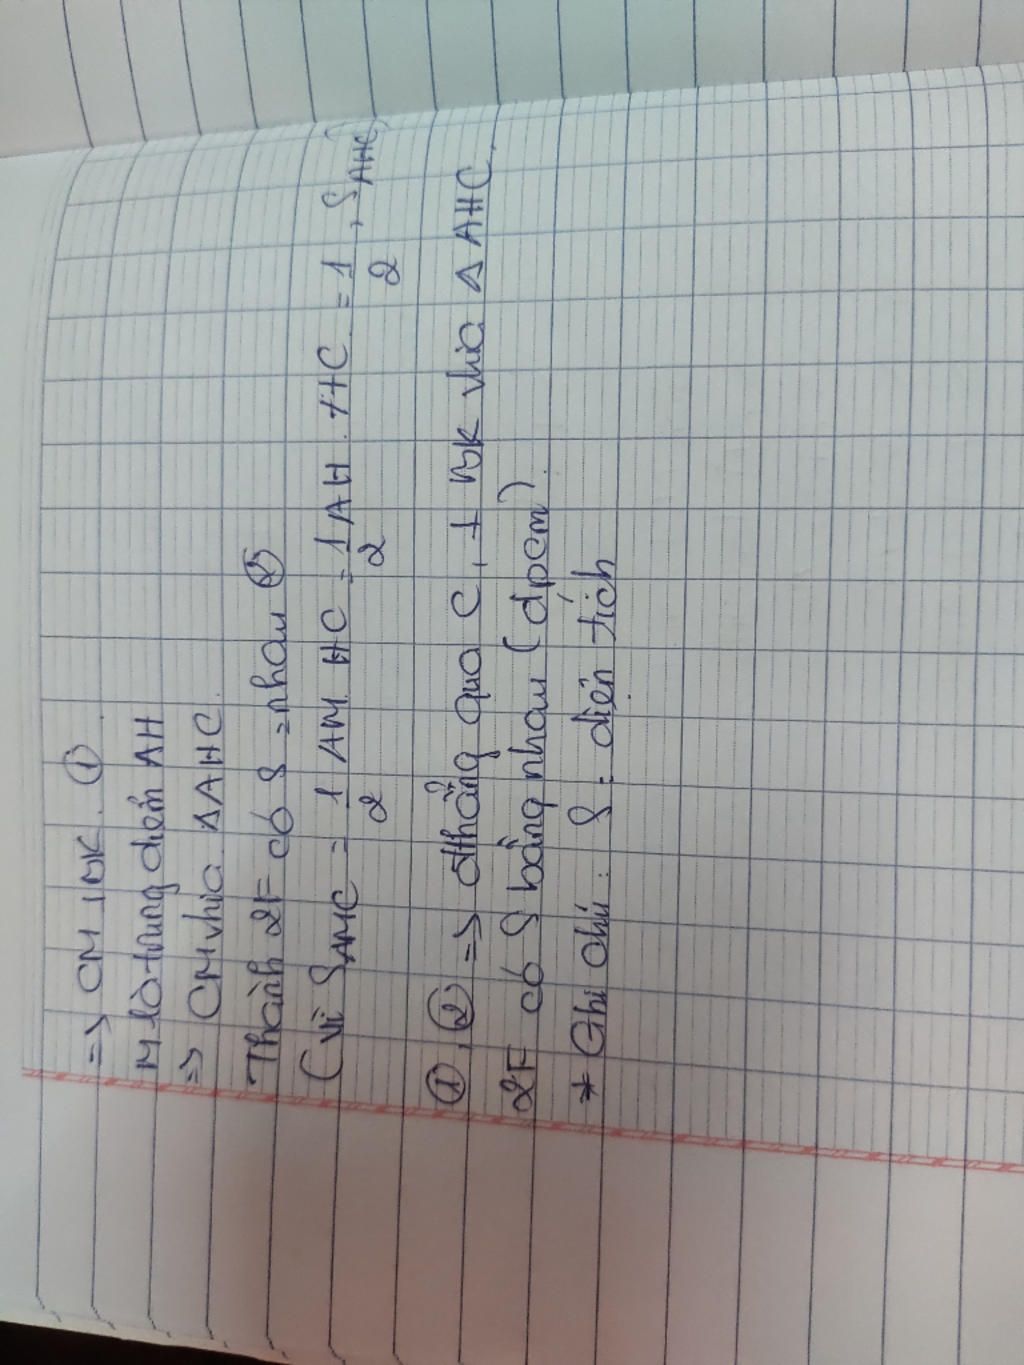 => CM ⊥ BK. ①
M là trung điểm AH
=> CM chia ΔAHC
Thành 2F có S = nhau ②
(vì S_AMC = 1/2 AM. HC = 1/2 AH. HC = 1/2 . S_AHC)
①, ② => đthẳng qua C, ⊥ BK chia Δ AHC
2F có S bằng nhau (đpcm).
* Ghi chú: S: diện tích